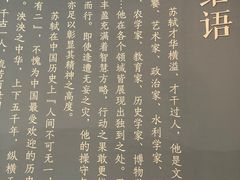 结语
苏轼才华横溢，才干过人，他是文
艺术家、政治家、水利学家、
农学家、教育家、历史学家、博物
他在各个领域皆展现出独到之处。
丰盈充满着智慧方略，行动之果敢更
即使逢遭无妄之灾，他的操守
亦足以彰显其精神之高度。
苏轼在中国历史上『人间不可无一，
有二』。不愧为中国最受欢迎的历史
泱泱之中华，上下五千年，纵横天